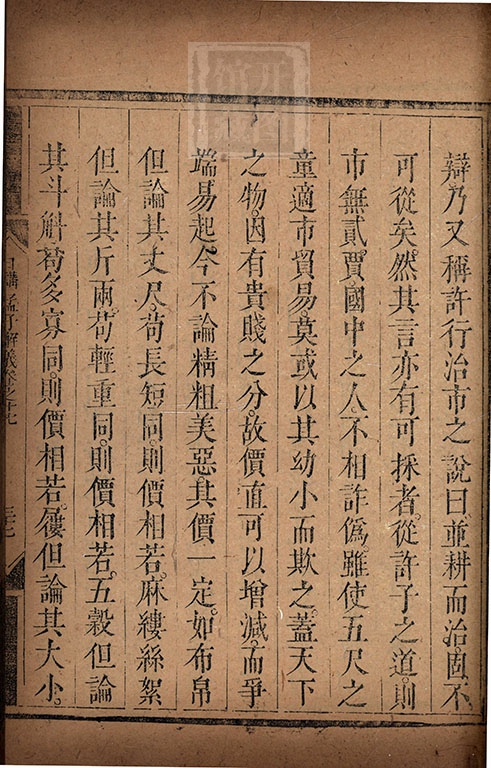 辯乃又稱許行治市之說曰並耕而治固不
可從矣然其言亦有可採者從許子之道則
市無貳賈國中之人不相詐僞雖使五尺之
童適市貿易莫或以其幼小而欺之蓋天下
之物因有貴賤之分故價直可以增減而爭
端易起今不論精粗美惡其價一定如布帛
但論其丈尺苟長短同則價相若麻縷絲絮
但論其斤兩苟輕重同則價相若五穀但論
其斗斛苟多寡同則價相若屨但論其大小
日講孟子解義卷之十七